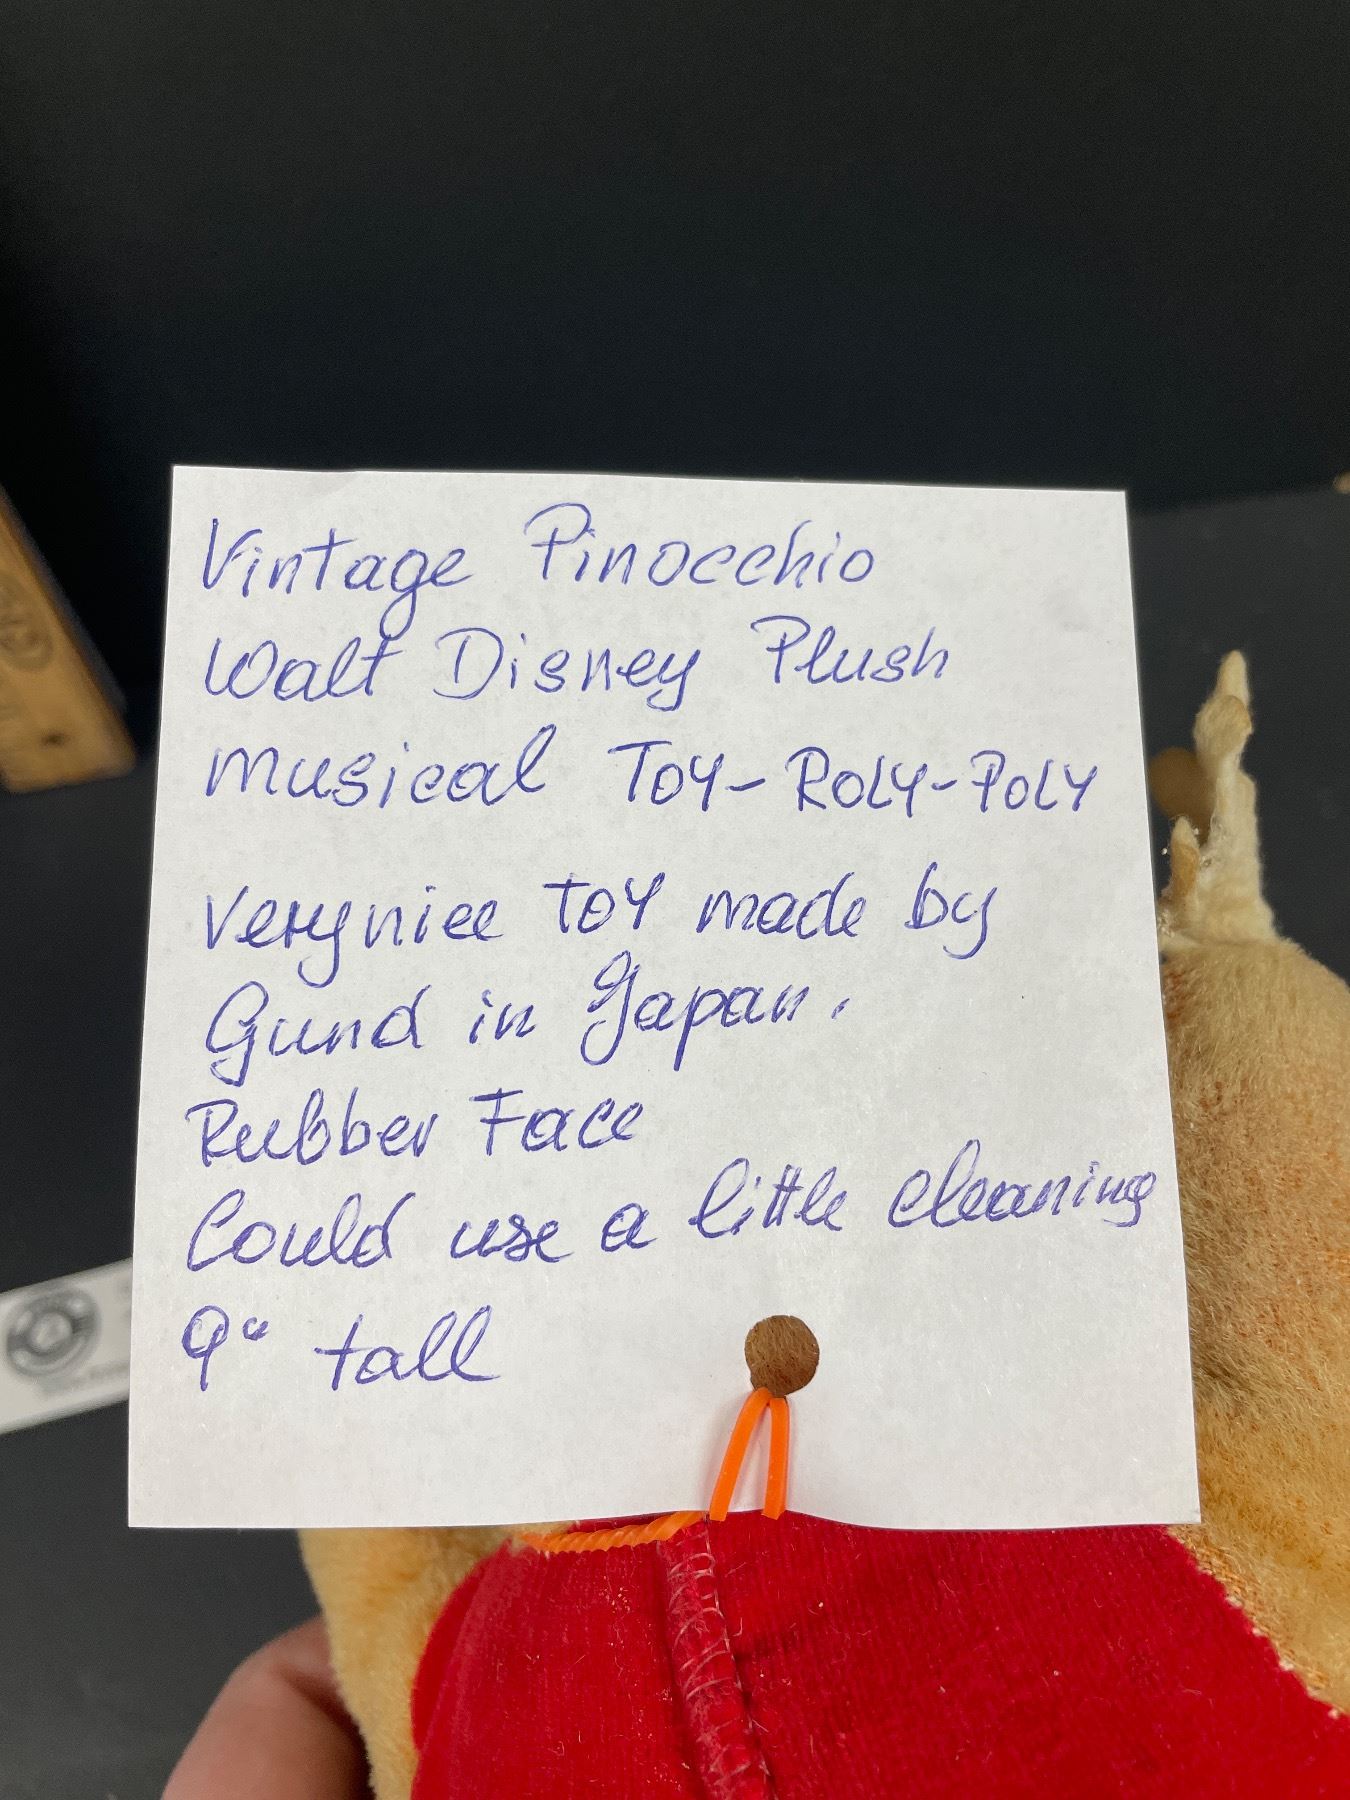 Vintage Pinocchio
Walt Disney Plush
Musical Toy-Roly-Poly
Very nice toy made by
Gund in Japan.
Rubber Face
Could use a little cleaning
9" tall